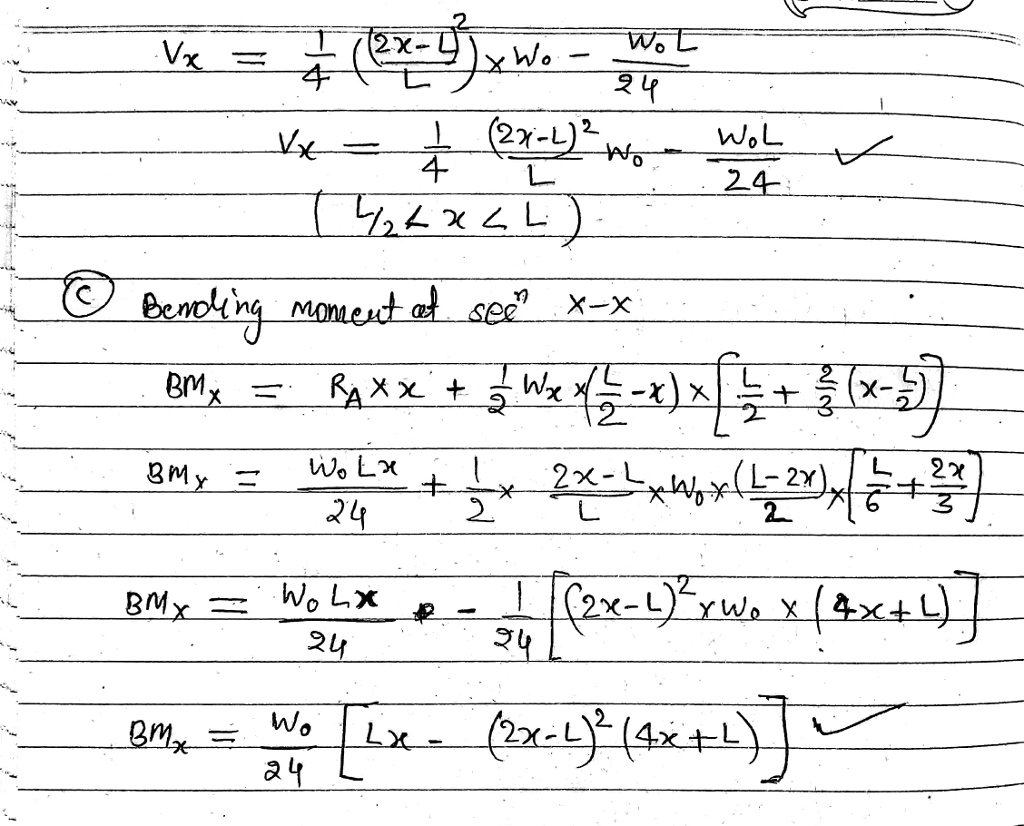 Vx = 1/4 ((2x-L)²/L) x Wo - WoL/24
Vx = 1/4 (2x-L)²/L Wo - WoL/24 ✓
( L/2 < x < L )
(c) Bending moment at secⁿ x-x
BMx = RA X x + 1/2 Wx x (L/2 - x) x [L/2 + 2/3 (x - L/2)]
BMx = WoLx/24 + 1/2 x 2x-L/L x Wo x (L-2x)/2 x [L/6 + 2x/3]
BMx = WoLx/24 - 1/24 [(2x-L)² x Wo x (4x+L)]
BMx = Wo/24 [Lx - (2x-L)² (4x+L)] ✓